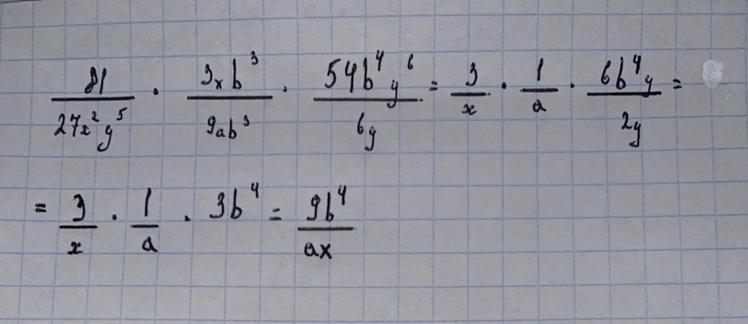 81/(27x²y⁵) · 9xb³/(9ab³) · 54b⁴y⁶/(6y) = 3/x · 1/a · 6b⁴y/(2y) =
= 3/x · 1/a · 3b⁴ = 9b⁴/(ax)